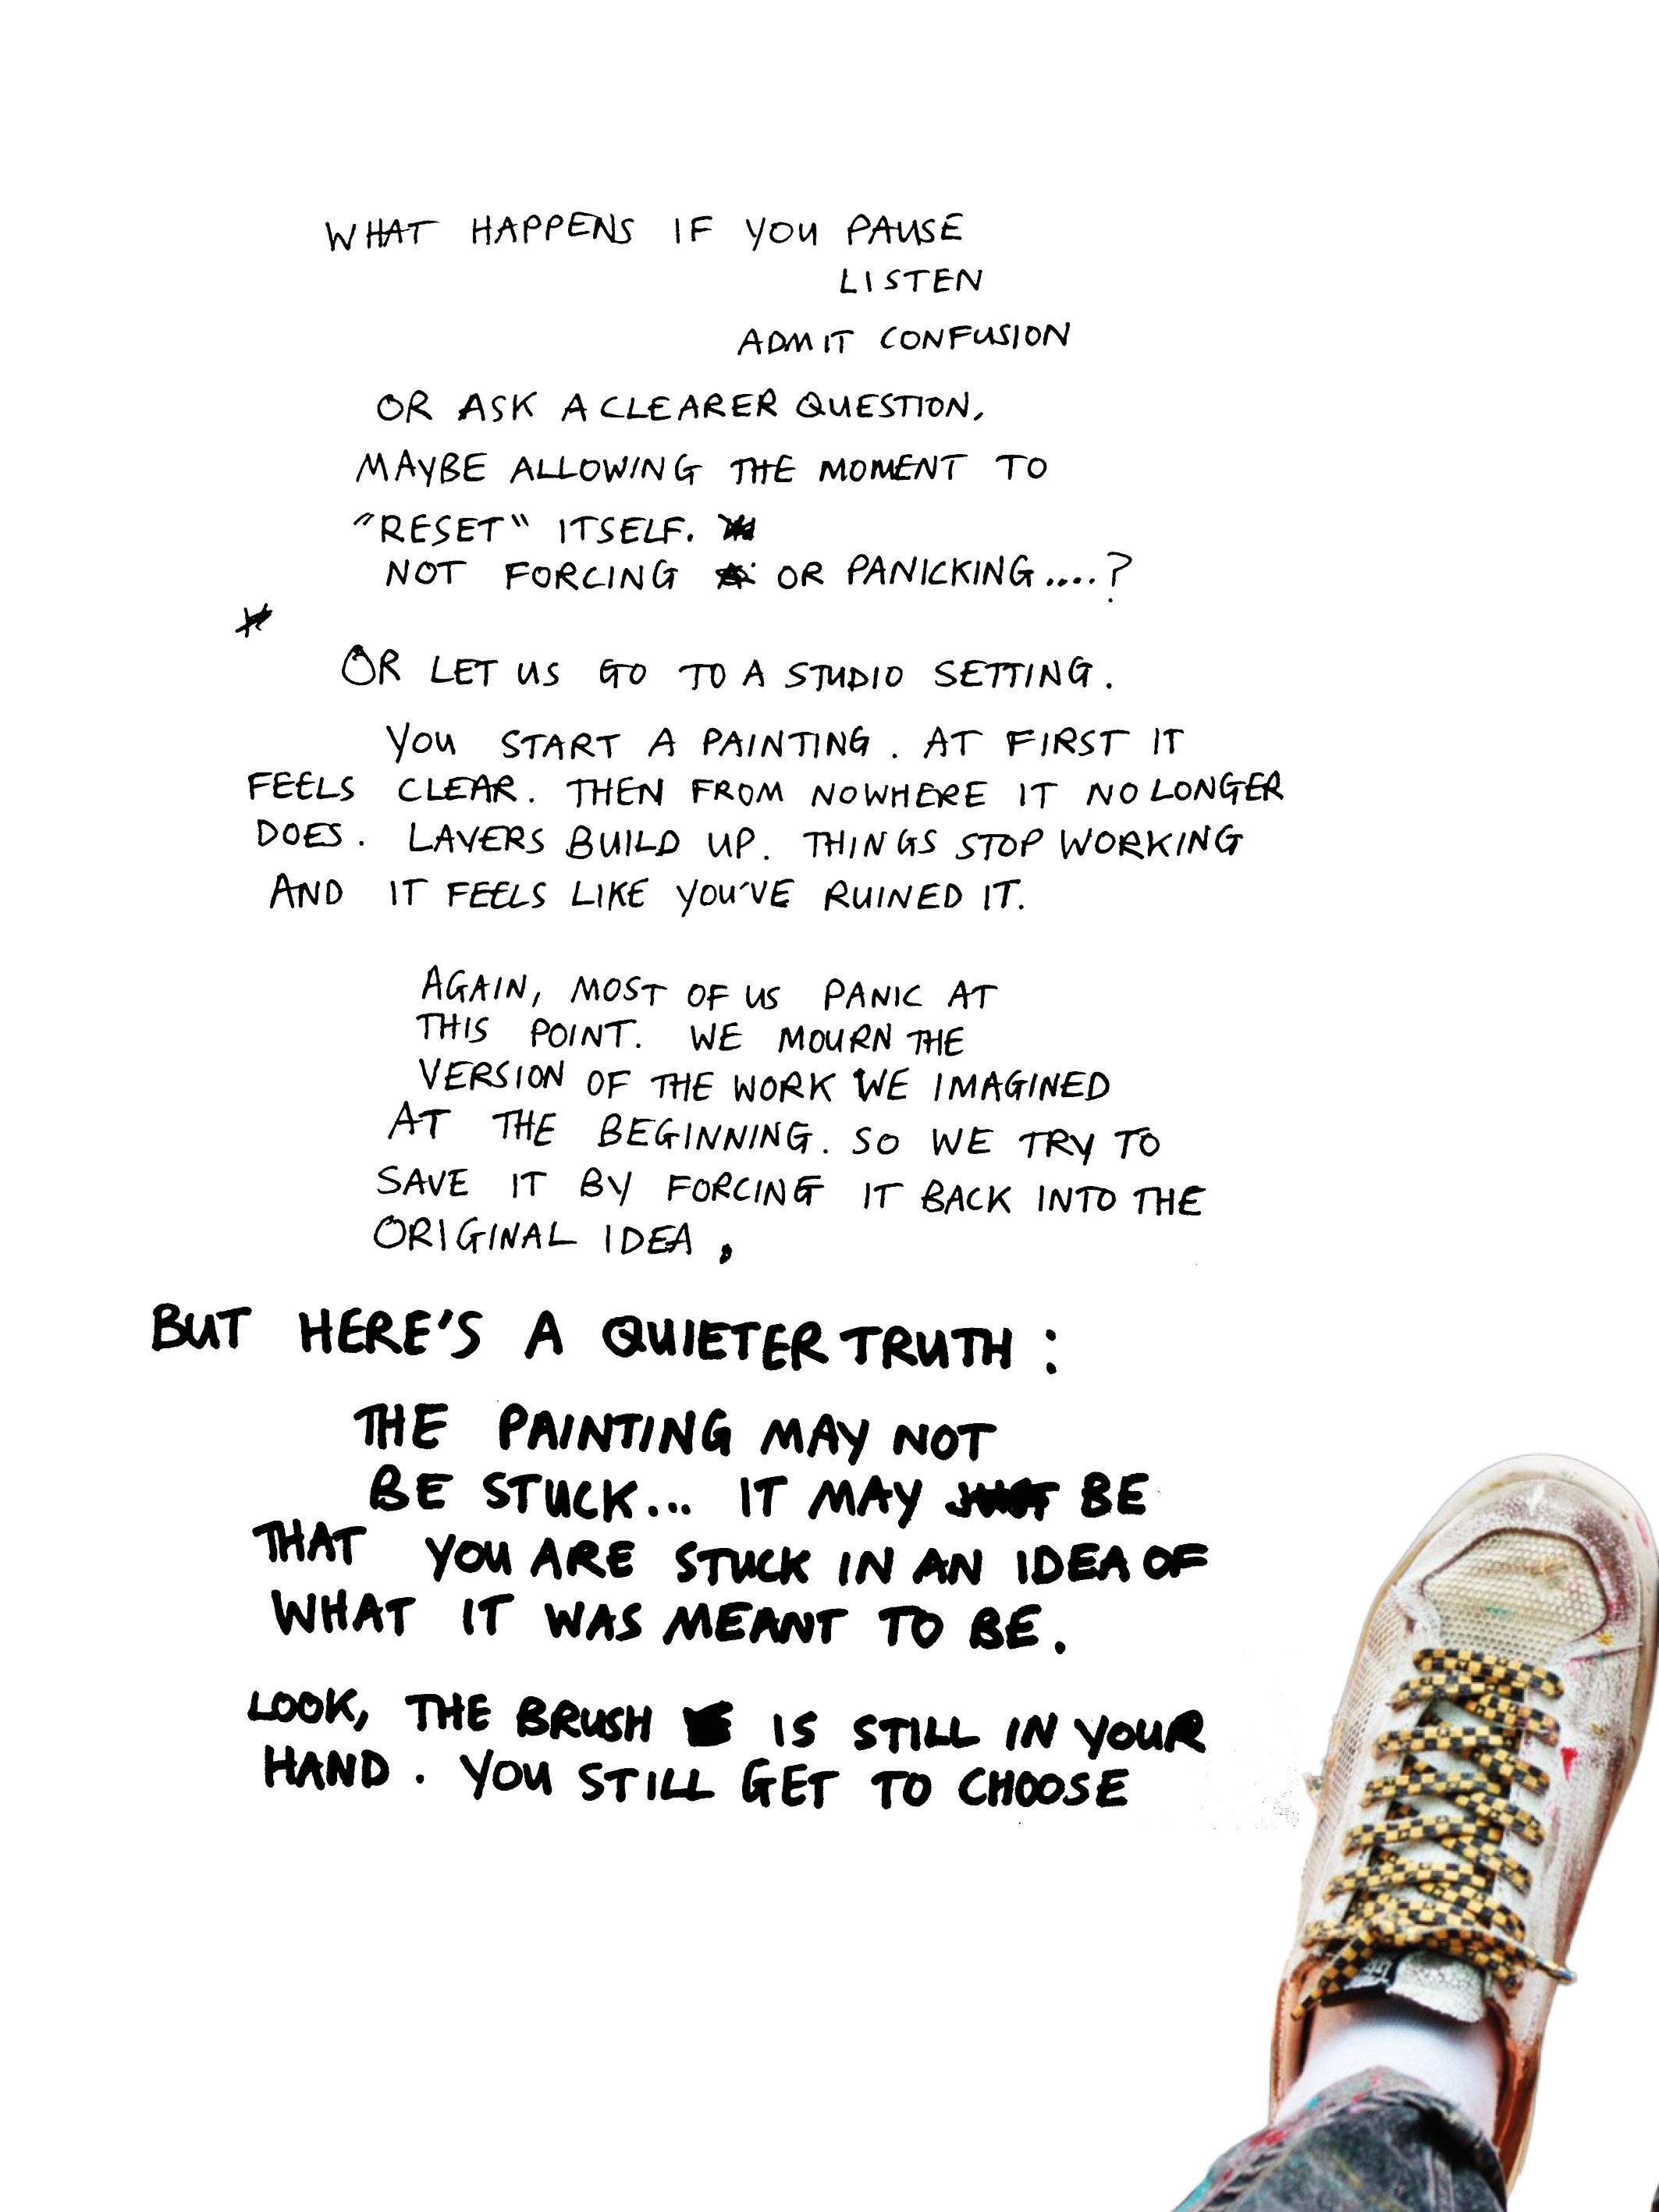 WHAT HAPPENS IF YOU PAUSE
LISTEN
ADMIT CONFUSION
OR ASK A CLEARER QUESTION,
MAYBE ALLOWING THE MOMENT TO
"RESET" ITSELF.
NOT FORCING OR PANICKING....?
OR LET US GO TO A STUDIO SETTING.
YOU START A PAINTING. AT FIRST IT
FEELS CLEAR. THEN FROM NOWHERE IT NO LONGER
DOES. LAYERS BUILD UP. THINGS STOP WORKING
AND IT FEELS LIKE YOU'VE RUINED IT.
AGAIN, MOST OF US PANIC AT
THIS POINT. WE MOURN THE
VERSION OF THE WORK WE IMAGINED
AT THE BEGINNING. SO WE TRY TO
SAVE IT BY FORCING IT BACK INTO THE
ORIGINAL IDEA,
BUT HERE'S A QUIETER TRUTH:
THE PAINTING MAY NOT
BE STUCK... IT MAY BE
THAT YOU ARE STUCK IN AN IDEA OF
WHAT IT WAS MEANT TO BE.
LOOK, THE BRUSH IS STILL IN YOUR
HAND. YOU STILL GET TO CHOOSE